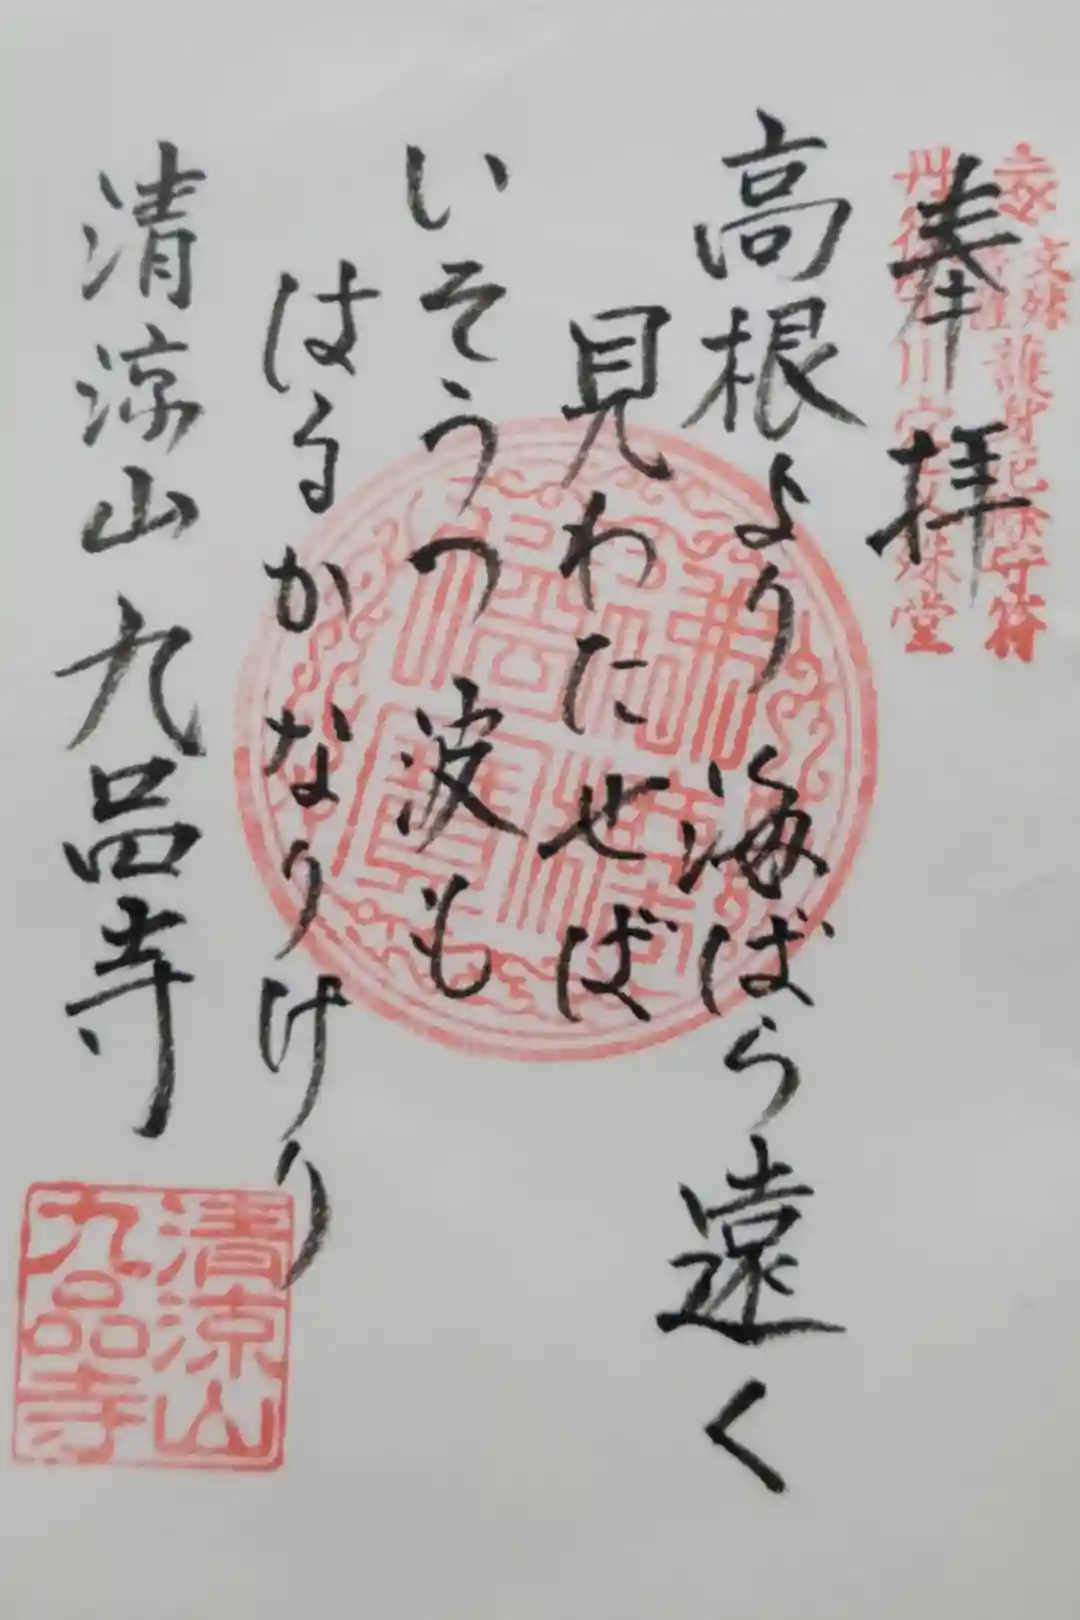 奉拝
高根より海ばら遠く
見わたせば
いそうつ波も
はるかなりけり
清涼山九品寺
清涼山
九品寺